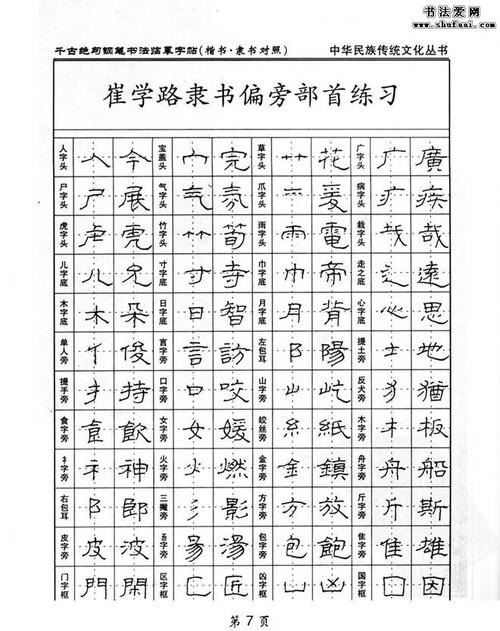 书法爱网
www.shufaai.com
千古绝句钢笔书法临摹字帖(楷书·隶书对照) 中华民族传统文化丛书
崔学路隶书偏旁部首练习
人字头 人 今 宝盖头 宀 完 草字头 艹 花 广字头 广 廣
尸字头 尸 展 气字头 气 氛 爪字头 爫 爰 病字头 疒 疾
虎字头 虍 虎 竹字头 竹 筍 雨字头 雨 電 栽字头 哉
儿字底 儿 兄 寸字底 寸 寺 巾字底 巾 帝 走之底 辶 遠
木字底 木 朵 日字底 日 智 月字底 月 背 心字底 心 思
单人旁 亻 俊 言字旁 言 訪 左包耳 阝 陽 提土旁 土 地
提手旁 扌 持 口字旁 口 咬 山字旁 山 屹 反犬旁 犭 猶
食字旁 飠 飲 女字旁 女 媛 绞丝旁 糹 紙 木字旁 木 板
礻字旁 礻 神 火字旁 火 燃 金字旁 金 鎮 舟字旁 舟 船
右包耳 阝 郎 三撇旁 彡 影 方字旁 方 放 斤字旁 斤 斯
皮字旁 皮 波 易字旁 湯 包字旁 包 飽 隹字旁 隹 雄
门字框 門 閑 区字框 匚 匠 凶字框 凵 凶 国字框 囗 因
第7页